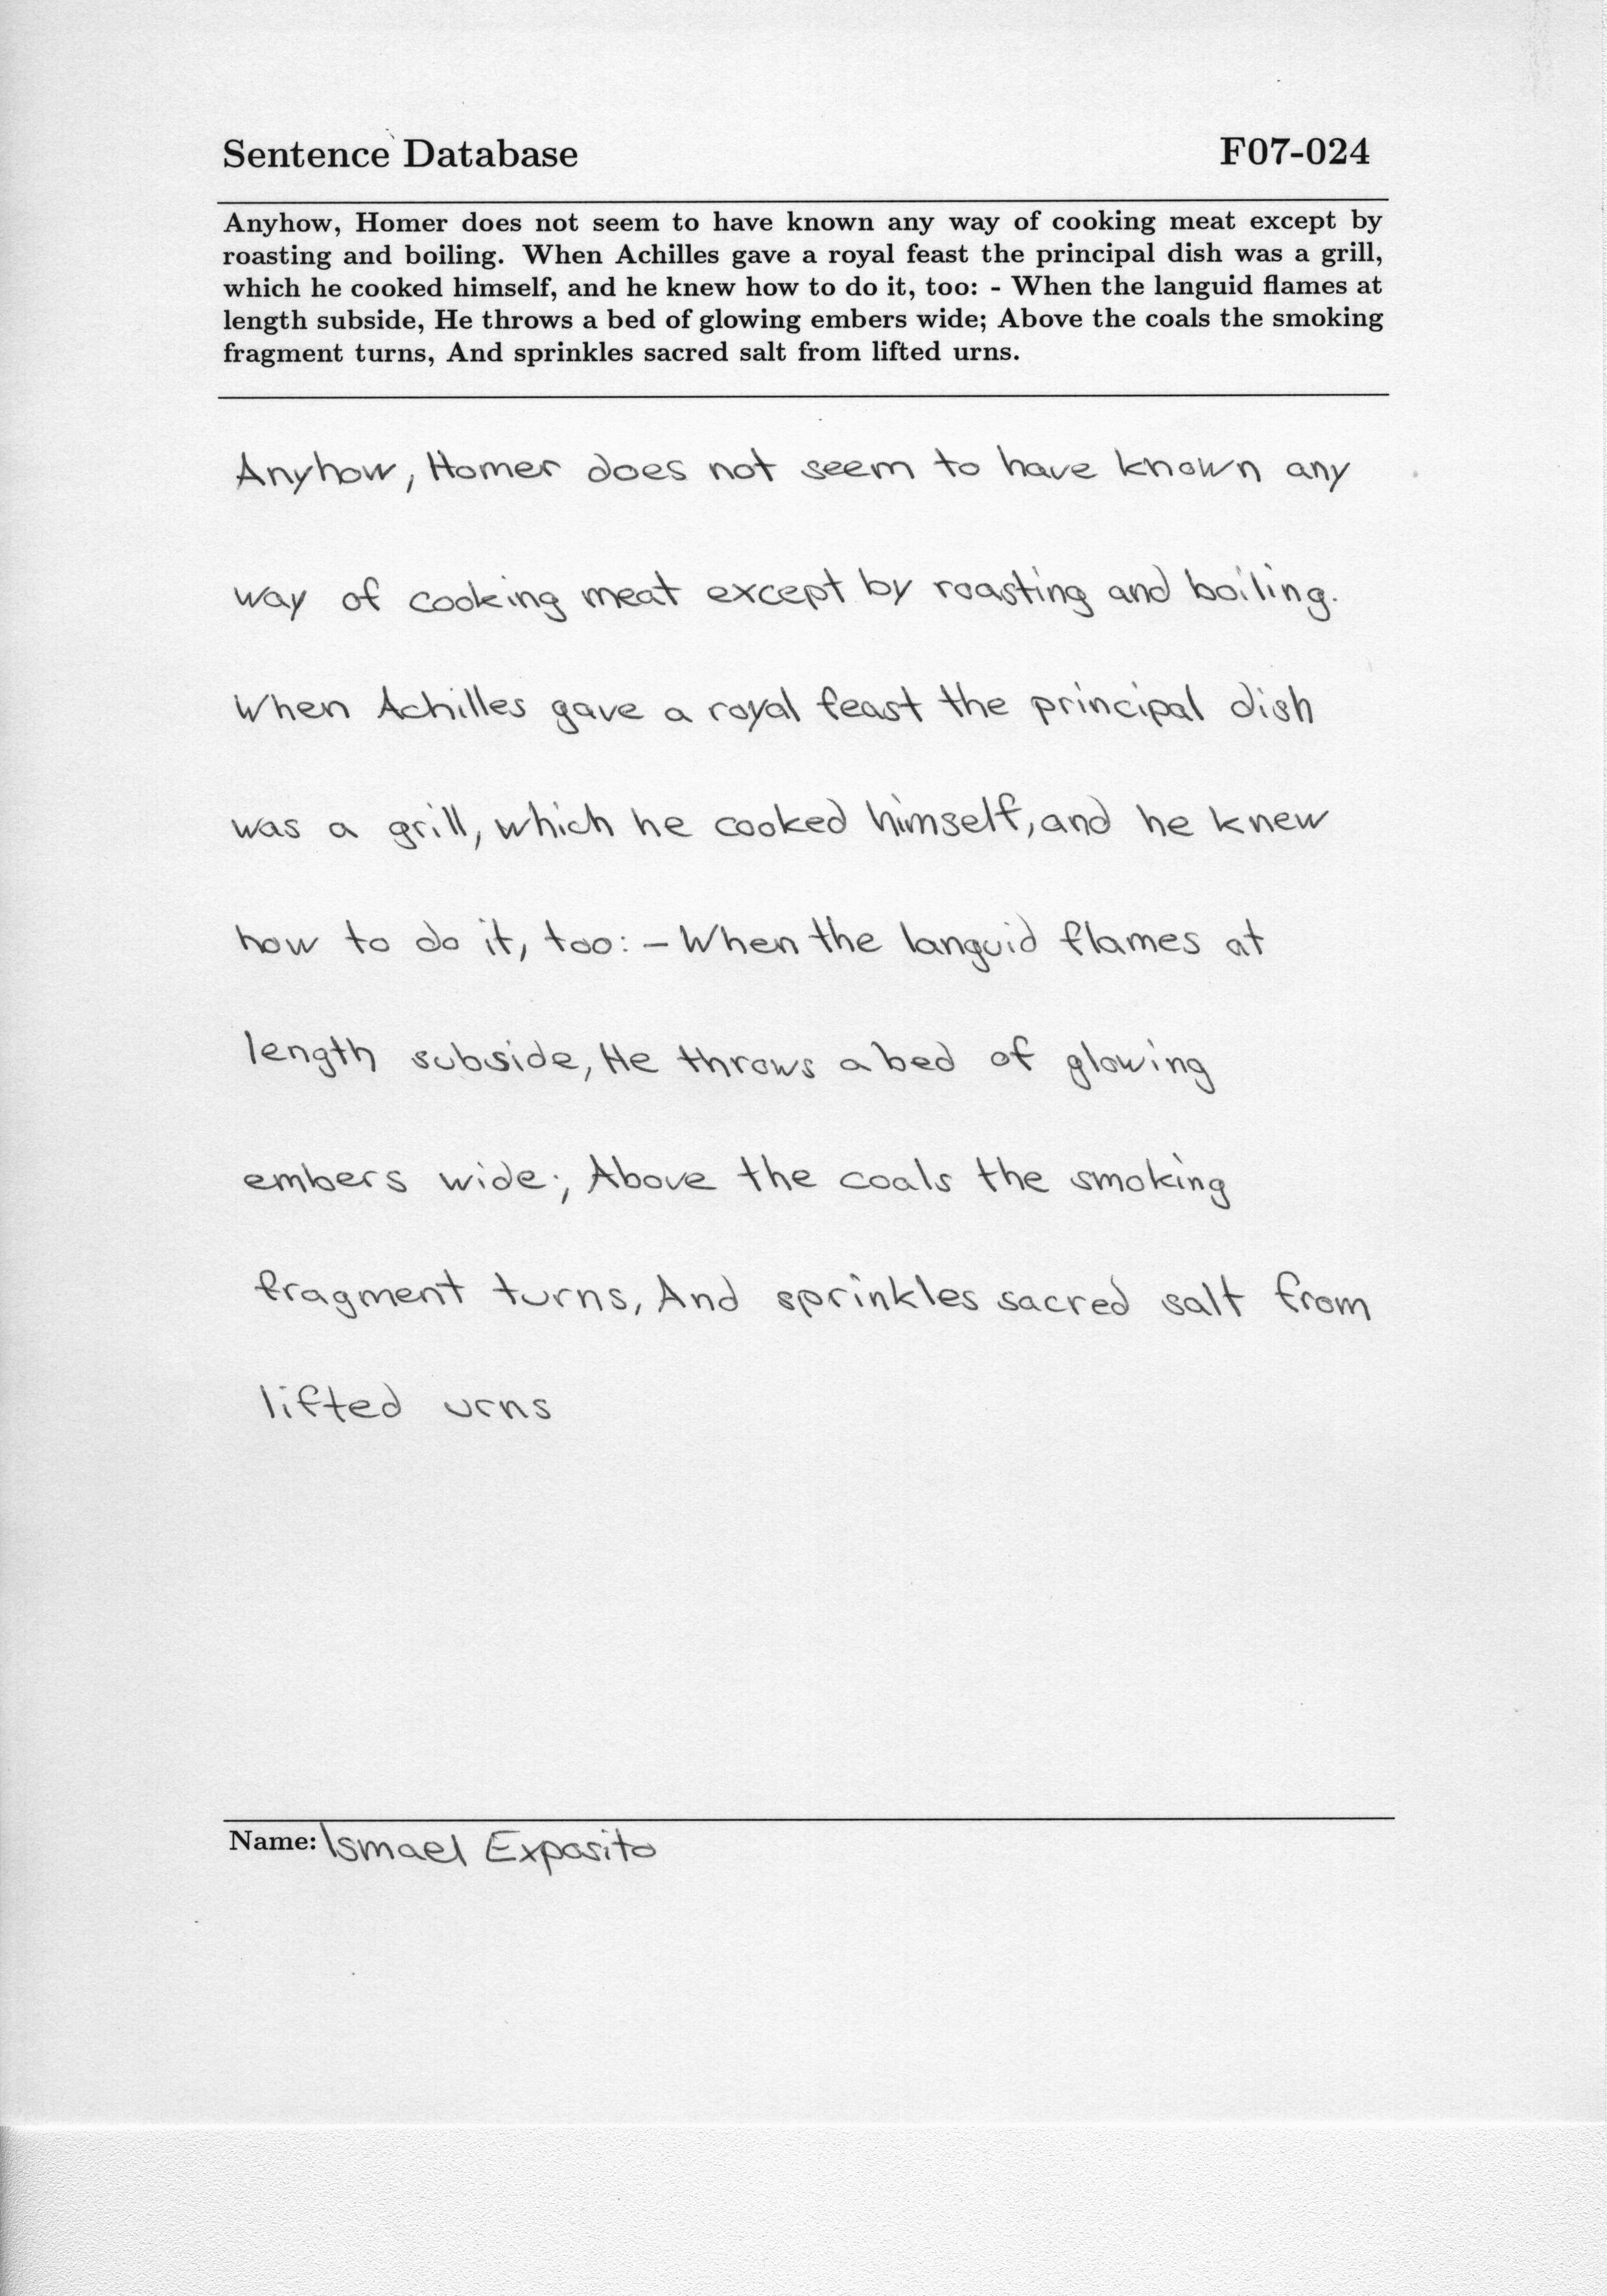 Sentence Database F07-024
Anyhow, Homer does not seem to have known any way of cooking meat except by
roasting and boiling. When Achilles gave a royal feast the principal dish was a grill,
which he cooked himself, and he knew how to do it, too: - When the languid flames at
length subside, He throws a bed of glowing embers wide; Above the coals the smoking
fragment turns, And sprinkles sacred salt from lifted urns.
Anyhow, Homer does not seem to have known any
way of cooking meat except by roasting and boiling.
When Achilles gave a royal feast the principal dish
was a grill, which he cooked himself, and he knew
how to do it, too: - When the languid flames at
length subside, He throws a bed of glowing
embers wide; Above the coals the smoking
fragment turns, And sprinkles sacred salt from
lifted urns
Name: Ismael Exposito